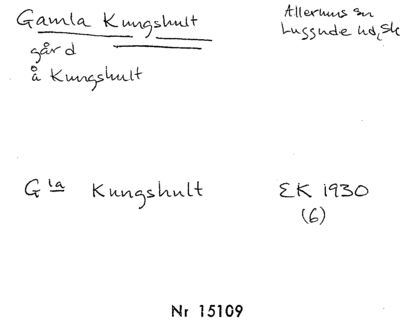 Gamla Kungshult
Allerums sn
Luggude hd, Sk
gård
å Kungshult
Gla Kungshult
EK 1930
(6)
Nr 15109